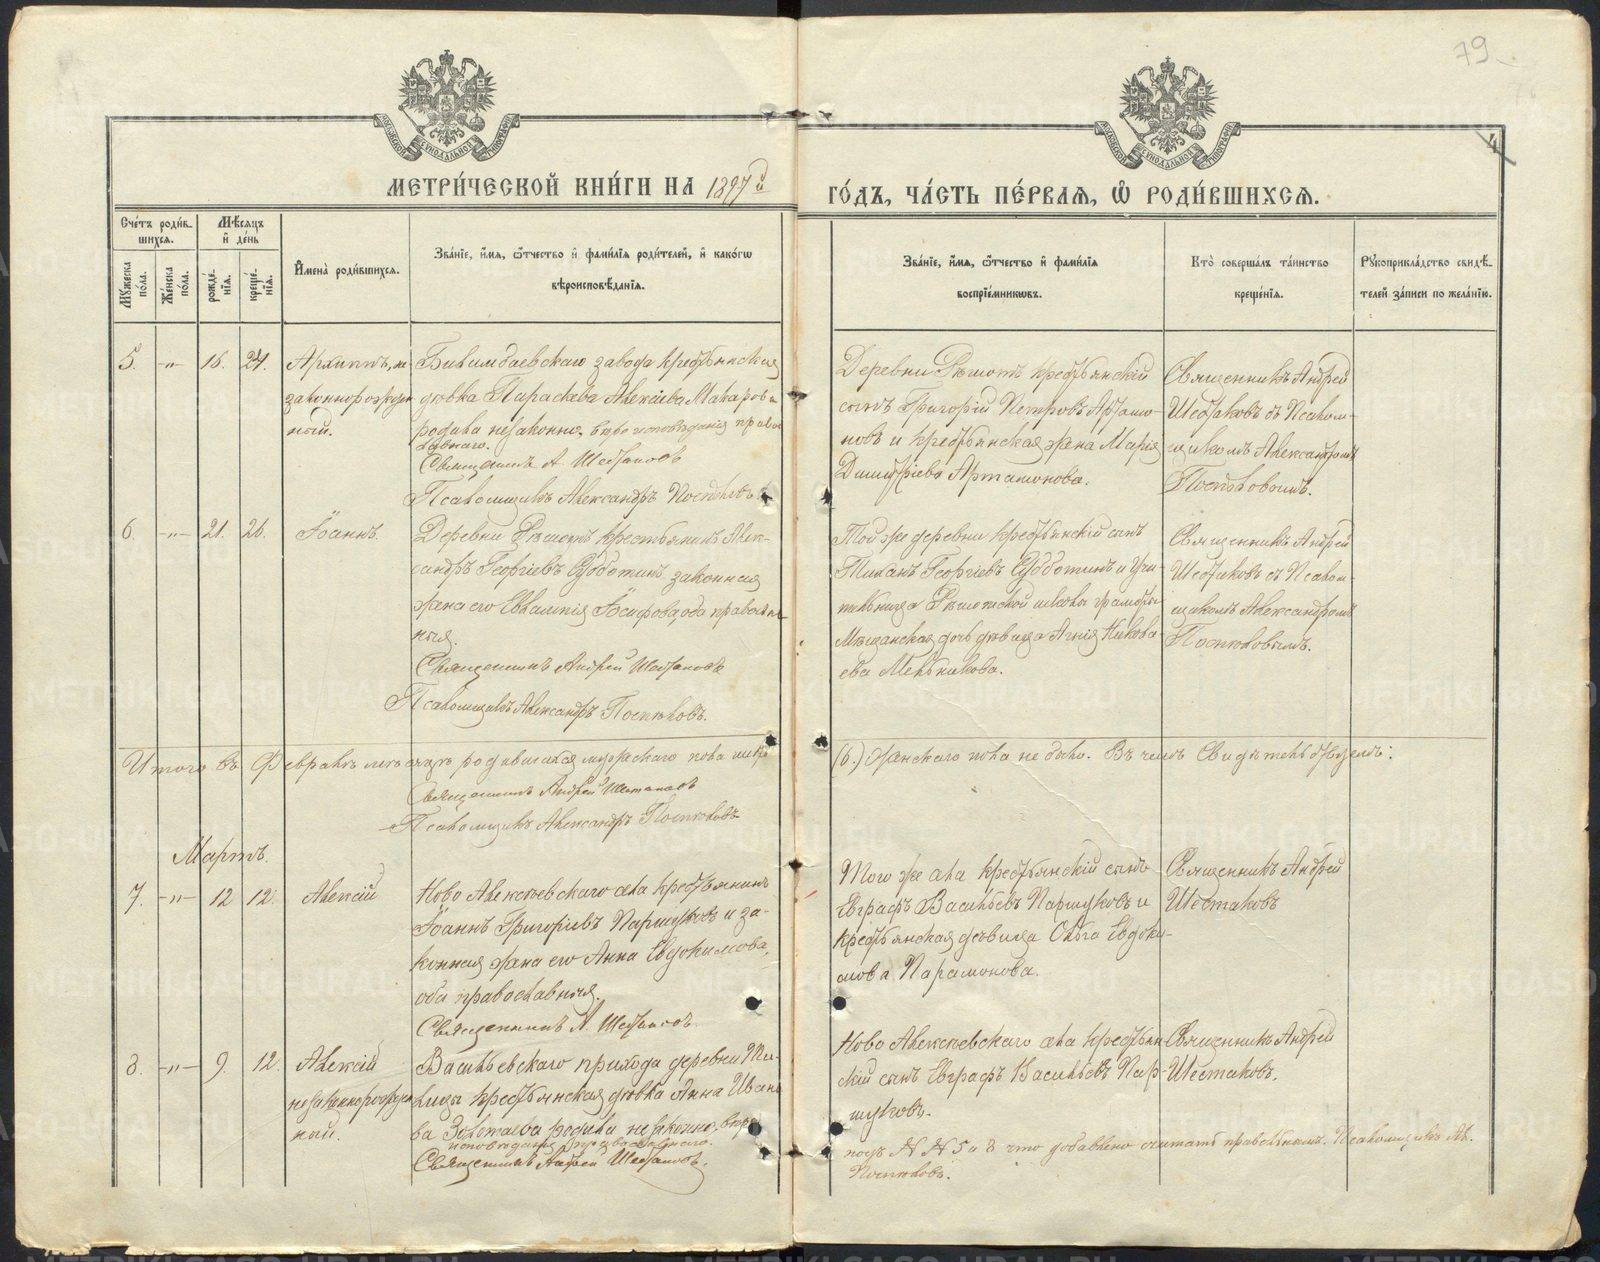 79
4
МЕТРИ́ЧЕСКОЙ КНИ́ГИ НА 1897 й
ГО́ДЪ, ЧА́СТЬ ПЕ́РВАЯ, Ѡ РОДИ́ВШИХСЯ.
Сче́тъ роди́в-
шихся.
Мѣ́сяцъ
и де́нь
Му́жеска
по́ла.
Же́нска
по́ла.
рожде́-
нія.
креще́-
нія.
Имена̀ роди́вшихся.
Зва́ніе, и́мя, ѻ́тчество и фами́лія роди́телей, и како́гѡ
вѣроисповѣ́данія.
Зва́ніе, и́мя, ѻ́тчество и фами́лія
воспріе́мникѡвъ.
Кто̀ соверша́лъ та́инство
креще́нія.
Рꙋкоприкла́дство свидѣ́-
телей за́писи по жела́нію.
5. -"- 16. 24. Архиппъ, не-
законнорожден
ный.
Билимбаевскаго завода крестьянская
дѣвка Параскева Алексіева Макарова
родила незаконно, вѣроисповѣданія право
славнаго.
Священникъ А. Шестаковъ
Псаломщикъ Александръ Постниковъ
Деревни Рѣшотъ крестьянскій
сынъ Григорій Петровъ Артамо-
новъ и крестьянская жена Марія
Димитріева Артамонова.
Священникъ Андрей
Шестаковъ съ Псалом-
щикомъ Александромъ
6. -"- 21. 26. Іоаннъ.
Деревни Рѣшотъ крестьянинъ Алек-
сандръ Георгіевъ Субботинъ законная
жена его Евлампія Іосифова, оба православ
ныя.
Священникъ Андрей Шестаковъ
Псаломщикъ Александръ
Той же деревни крестьянскій сынъ
Георгіевъ Субботинъ и Учи-
тельница Рѣшотской школы грамоты
Мѣщанская дочь дѣвица Агнія Никола-
ева Мельникова.
Священникъ Андрей
Шестаковъ съ Псалом-
щикомъ Александромъ
Итого въ Февралѣ мѣсяцѣ родившихся мужескаго пола шесть
(6.) Женскаго пола не было. Въ чемъ Свидѣтельствуемъ:
Священникъ Андрей Шестаковъ
Псаломщикъ Александръ
Мартъ.
7. -"- 12 12. Алексій
Ново Алексѣевскаго села крестьянинъ
Іоаннъ Григоріевъ Паршуковъ и за-
конная жена его Анна Евдокимова,
оба православныя.
Священникъ А. Шестаковъ.
Того же села крестьянскій сынъ
Евграфъ Васильевъ Паршуковъ и
крестьянская дѣвица Ольга Евдоки-
мова Парамонова.
Священникъ Андрей
Шестаковъ
8. -"- 9. 12. Алексій
незаконнорожден
ный.
Васильевскаго прихода деревни
крестьянская дѣвка Анна Ивано
ва Золотаева родила незаконно, вѣро
исповѣданія православнаго.
Священникъ Андрей Шестаковъ.
Ново Алексѣевскаго села крестьян-
скій сынъ Евграфъ Васильевъ Пар-
шуковъ.
Священникъ Андрей
Шестаковъ.
подъ N N 5 и 8 что добавлено считать правильнымъ. Псаломщикъ Ал.